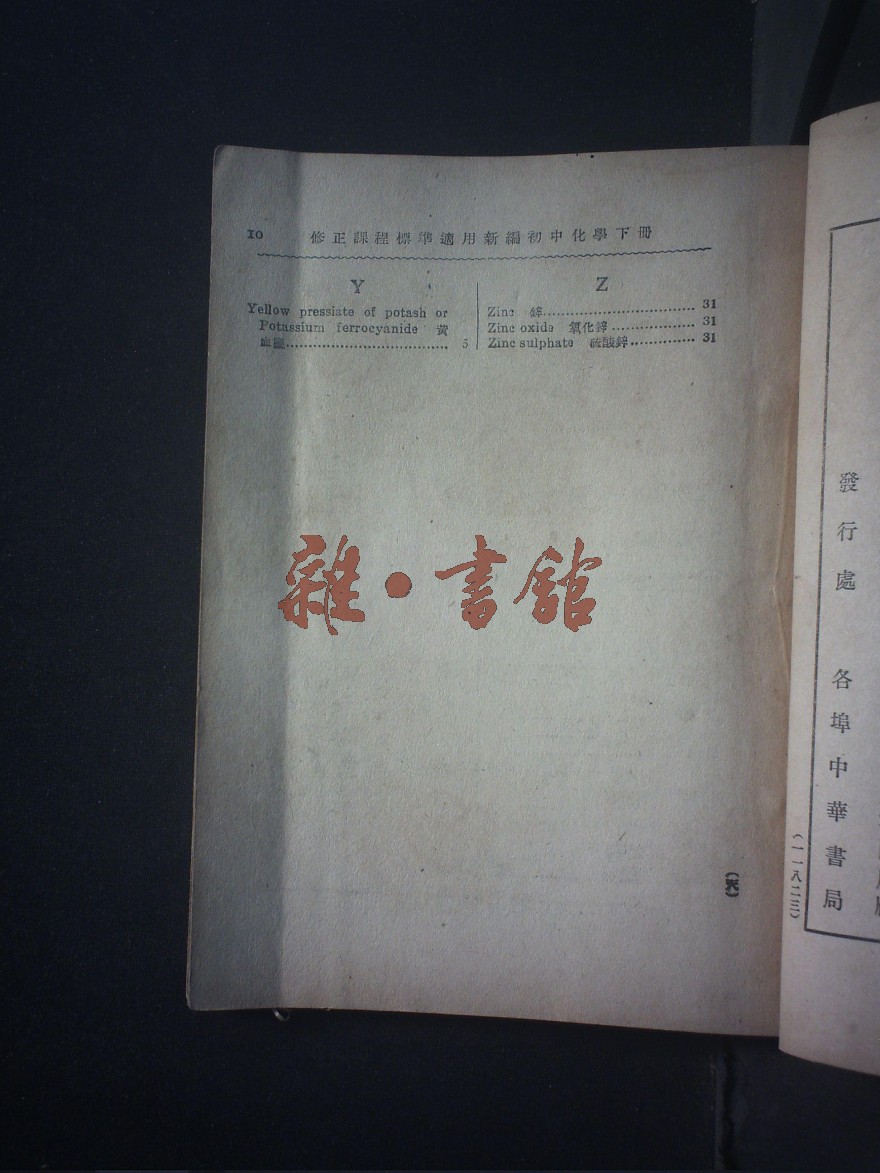 10 修正課程標準適用新編初中化學下冊
Y
Yellow pressiate of potash or
Potassium ferrocyanide 黃
血鹽 5
Z
Zinc 鋅 31
Zinc oxide 氧化鋅 31
Zinc sulphate 硫酸鋅 31
雜·書館
發行處 各埠中華書局
(一一八二三)